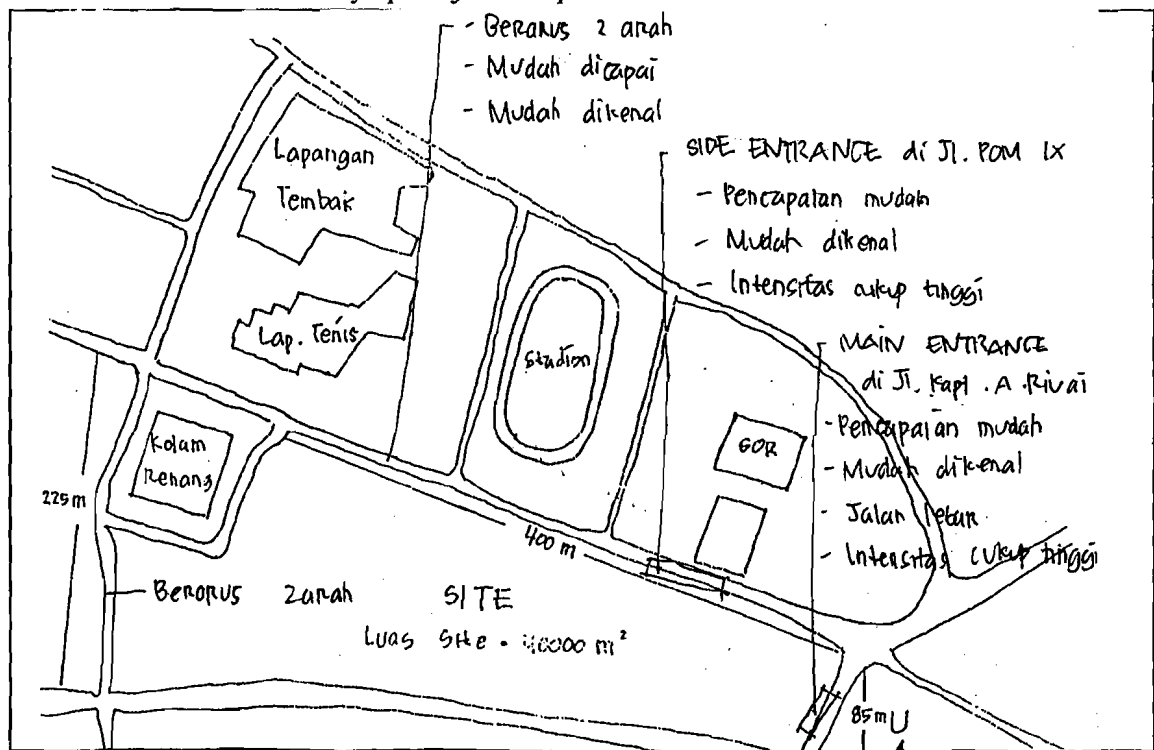 - Berarus 2 arah
- Mudah dicapai
- Mudah dikenal
SIDE ENTRANCE di Jl. POM IX
- Pencapaian mudah
- Mudah dikenal
- Intensitas cukup tinggi
MAIN ENTRANCE
di Jl. Kapt. A. Rivai
- Pencapaian mudah
- Mudah dikenal
- Jalan lebar
- Intensitas cukup tinggi
Lapangan
Tembak
Lap. Tenis
Stadion
GOR
Kolam
Renang
225 m
400 m
- Berarus 2 arah
SITE
Luas Site = 40000 m²
85 m
U